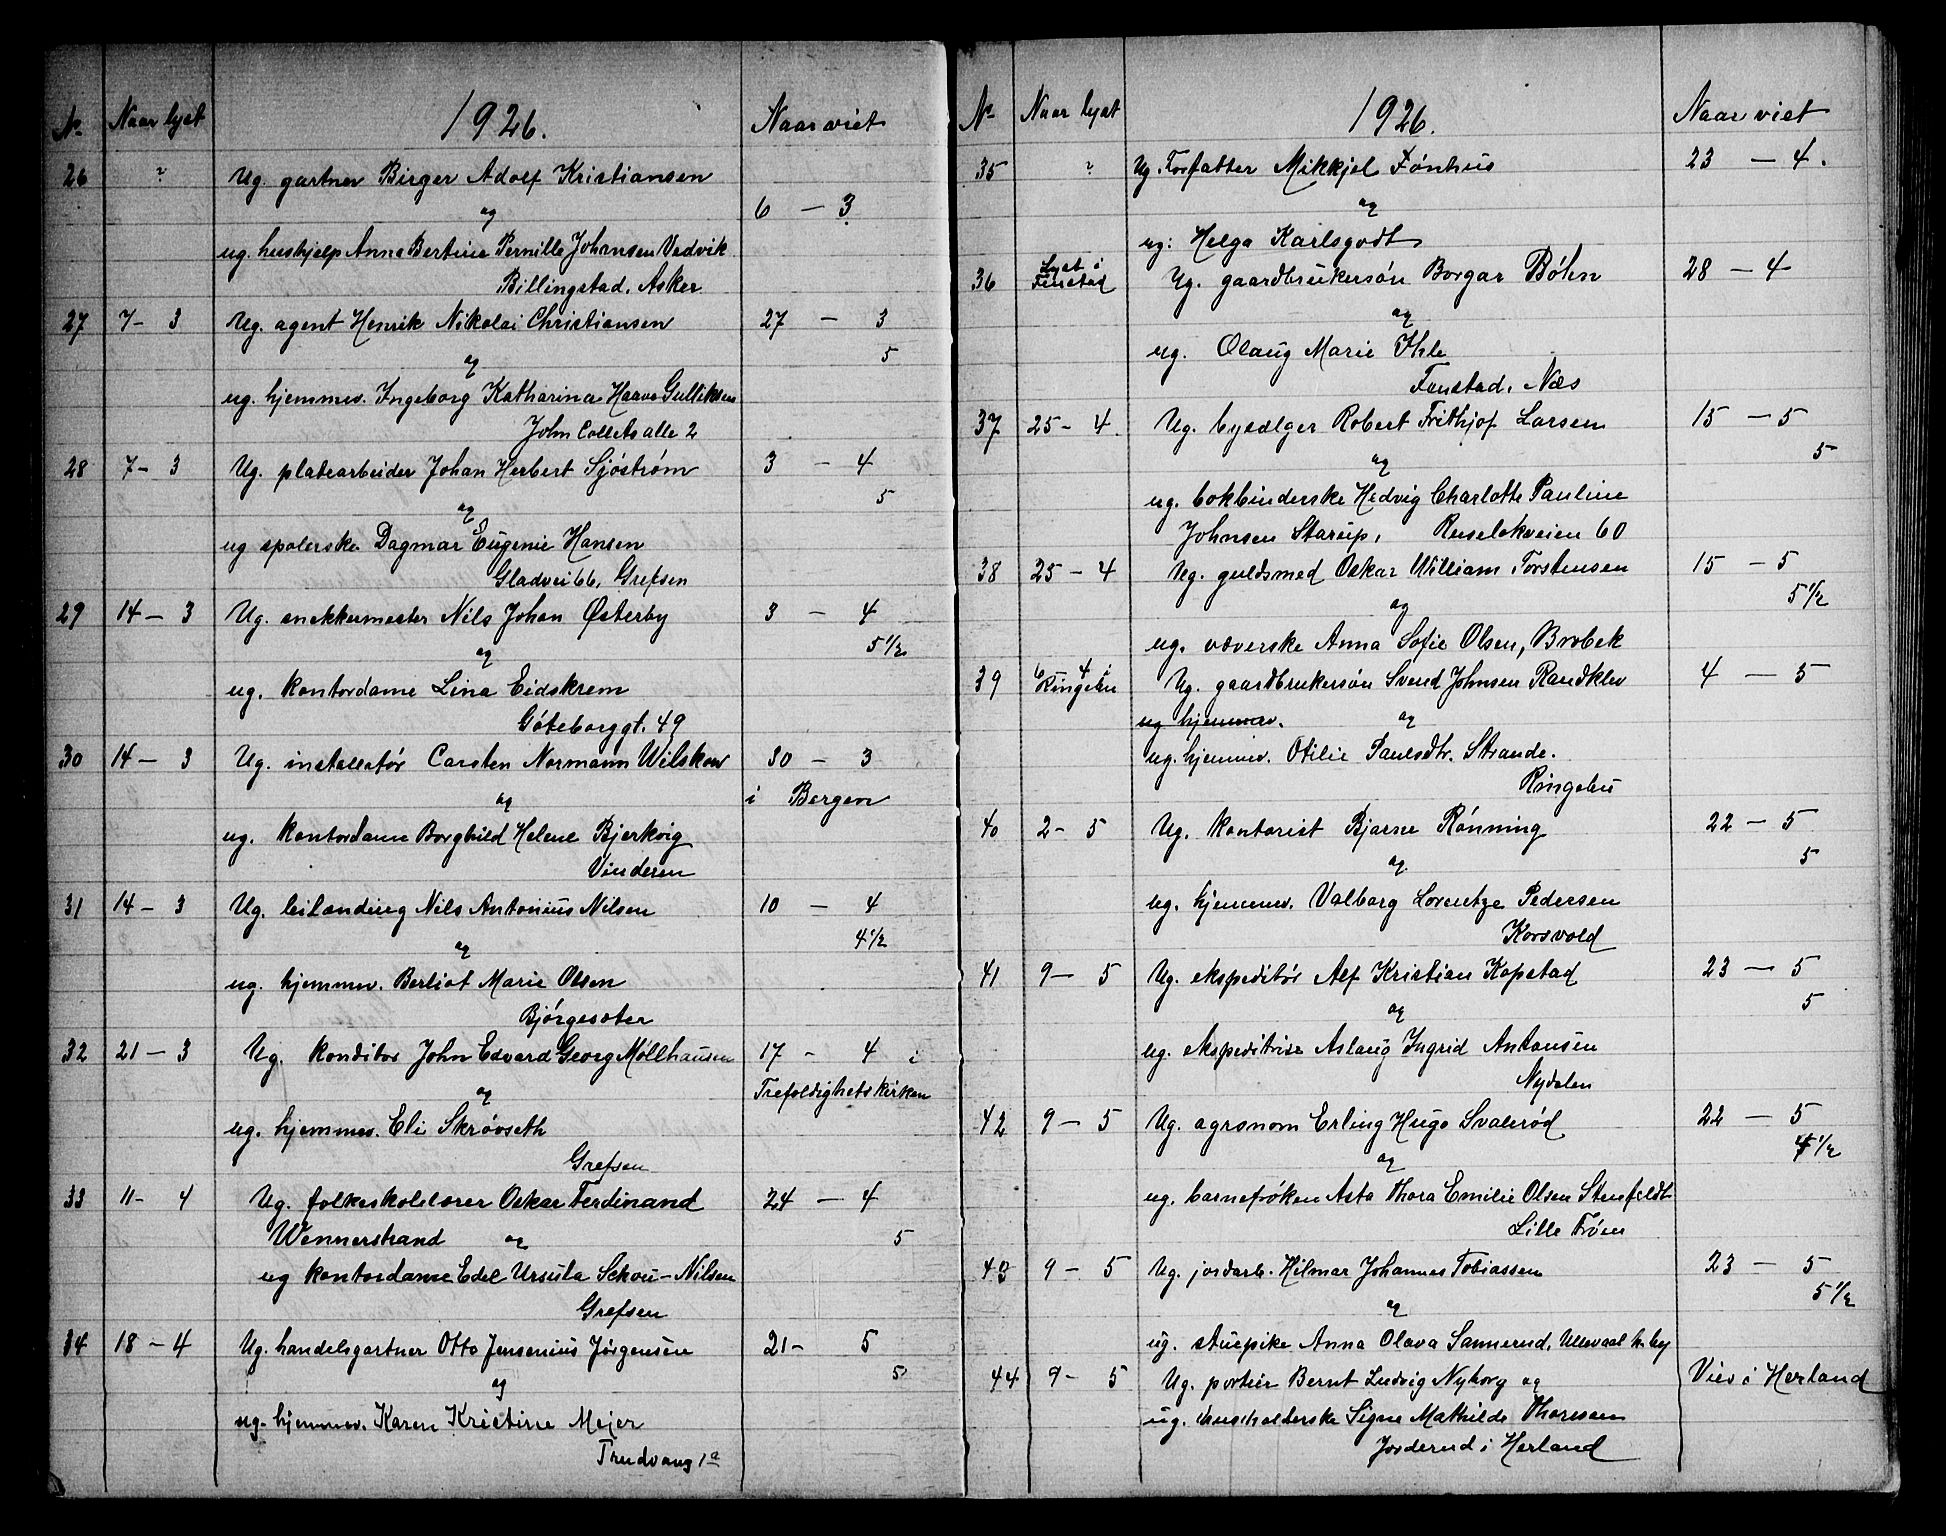 No Naar lyst 1926. Naar viet
26 ? Ug. gartner Birger Adolf Kristiansen
og 6 — 3
ug. hushjelp Anna Bertine Pernille Johansen Vadvik
Billingstad. Asker
27 7 - 3 Ug. agent Henrik Nikolai Christiansen 27 — 3
og 5
ug. hjemmev. Ingeborg Katharina Haave Gulliksen
John Collets alle 2
28 7 - 3 Ug. platearbeider Johan Herbert Sjöström 3 — 4
og 5
ug spolerske Dagmar Eugenie Hansen
Gladvei 66, Grefsen
29 14 — 3 Ug. snekkermester Nils Johan Østerby 3 — 4
og 5 1/2
ug. kontordame Lina Eidskrem
Göteborggt. 49
30 14 — 3 Ug. installatør Carsten Normann Wilskow 30 — 3
og i Bergen
ug. kontordame Borghild Helene Bjerkvig
Vinderen
31 14 — 3 Ug. leilending Nils Antonius Nilsen 10 — 4
og 4 1/2
ug. hjemmev. Berliot Marie Olsen
Bjørgesæter
32 21 — 3 Ug. konditor John Edvard Georg Möllhausen 17 - 4 i
og Trefoldighetskirken
ug. hjemmev. Eli Skrøvseth
Grefsen
33 11 - 4 Ug. folkeskolelærer Oskar Ferdinand 24 — 4
Wennerstrand og 5
ug kontordame Edel Ursula Schou-Nilsen
Grefsen
34 18 — 4 Ug. handelsgartner Otto Jensenius Jørgensen 21 - 5
og 5
ug. hjemmev. Karen Kristine Mejer
Trudvang 1a
No Naar lyst 1926. Naar viet
35 ? Ug. Forfatter Mikkjel Fønhus 23 — 4.
og
ug: Helga Karlsgodt
36 Lyst i Fenstad Ug. gaardbrukersøn Borgar Bøhn 28 — 4
og
ug. Olaug Marie Ihle
Fenstad, Næs
37 25 - 4. Ug. bysælger Robert Frithjof Larsen 15 — 5
og 5
ug. bokbinderske Hedvig Charlotte Pauline
Johnsen Starup, Ruseløkveien 60
38 25 — 4 Ug. guldsmed Oskar William Torstensen 15 — 5
og 5 1/2
ug. væverske Anna Sofie Olsen, Brobek
39 6 4 i Ringebu Ug. gaardbrukersøn Svend Johnsen Randklev 4 — 5
ug hjemmev. og
ug. hjemmev. Otilie Paulsdtr. Strande.
Ringebu
40 2 - 5 Ug. kontorist Bjarne Rønning 22 — 5
og 5
ug. hjemmev. Valborg Lorentze Pedersen
Korsvold
41 9 — 5 Ug. ekspeditør Alf Kristian Kopstad 23 — 5
og 5
ug. ekspeditrise Aslaug Ingrid Antonsen
Nydalen
42 9 — 5 Ug. agronom Erling Hugo Svalerød 22 — 5
og 4 1/2
ug. barnefrøken Asta Thora Emilie Olsen Stenfeldt
Lille Frøen
43 9 — 5 Ug. jordarb. Hilmar Johannes Tobiassen 23 — 5
og 5 1/2
ug. stuepike Anna Olava Sannerud, Ullevaal h. by
44 9 - 5 Ug. portier Bernt Ludvig Nyborg og Vies i Hærland
ug. husholderske Signe Mathilde Thoresen
Jorderud i Hærland